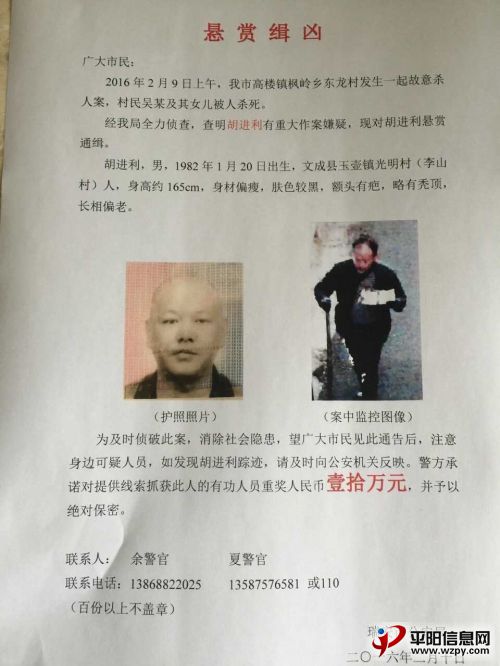 悬赏缉凶
广大市民：
2016年2月9日上午，我市高楼镇枫岭乡东龙村发生一起故意杀
人案，村民吴某及其女儿被人杀死。
经我局全力侦查，查明胡进利有重大作案嫌疑，现对胡进利悬赏
通缉。
胡进利，男，1982年1月20日出生，文成县玉壶镇光明村（李山
村）人，身高约165cm，身材偏瘦，肤色较黑，额头有疤，略有秃顶，
长相偏老。
（护照照片）
（案中监控图像）
为及时侦破此案，消除社会隐患，望广大市民见此通告后，注意
身边可疑人员，如发现胡进利踪迹，请及时向公安机关反映。警方承
诺对提供线索抓获此人的有功人员重奖人民币壹拾万元，并予以
绝对保密。
联系人： 余警官 夏警官
联系电话：13868822025 13587576581 或110
（百份以上不盖章）
瑞
二〇一六年二月十日
平阳信息网
www.wzpy.com